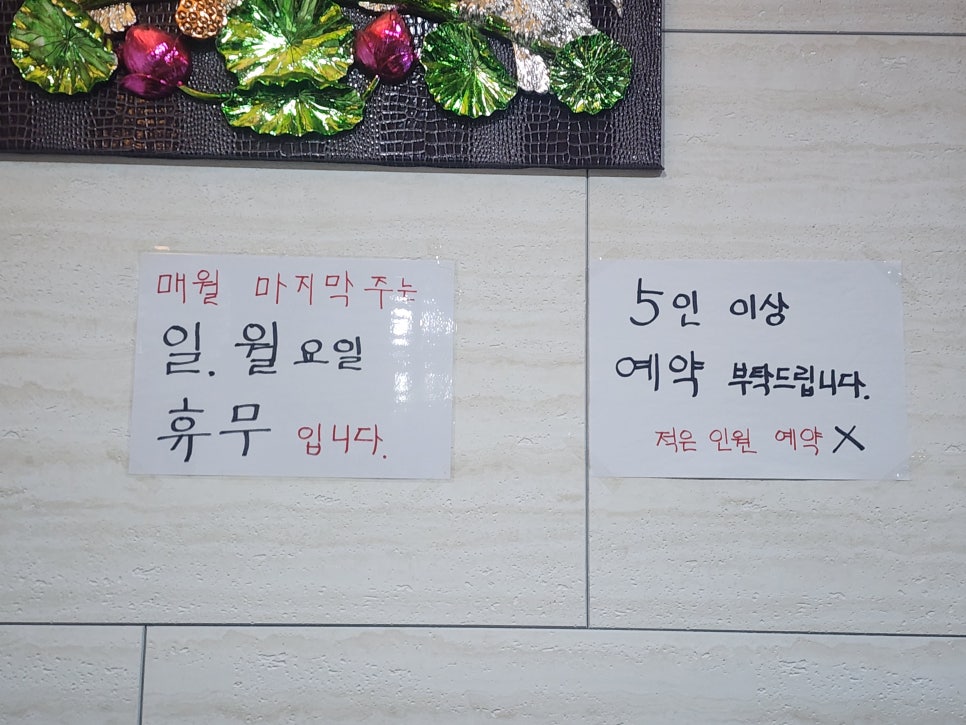 매월 마지막 주는
일. 월요일
휴무 입니다.
5인 이상
예약 부탁드립니다.
적은 인원 예약 X